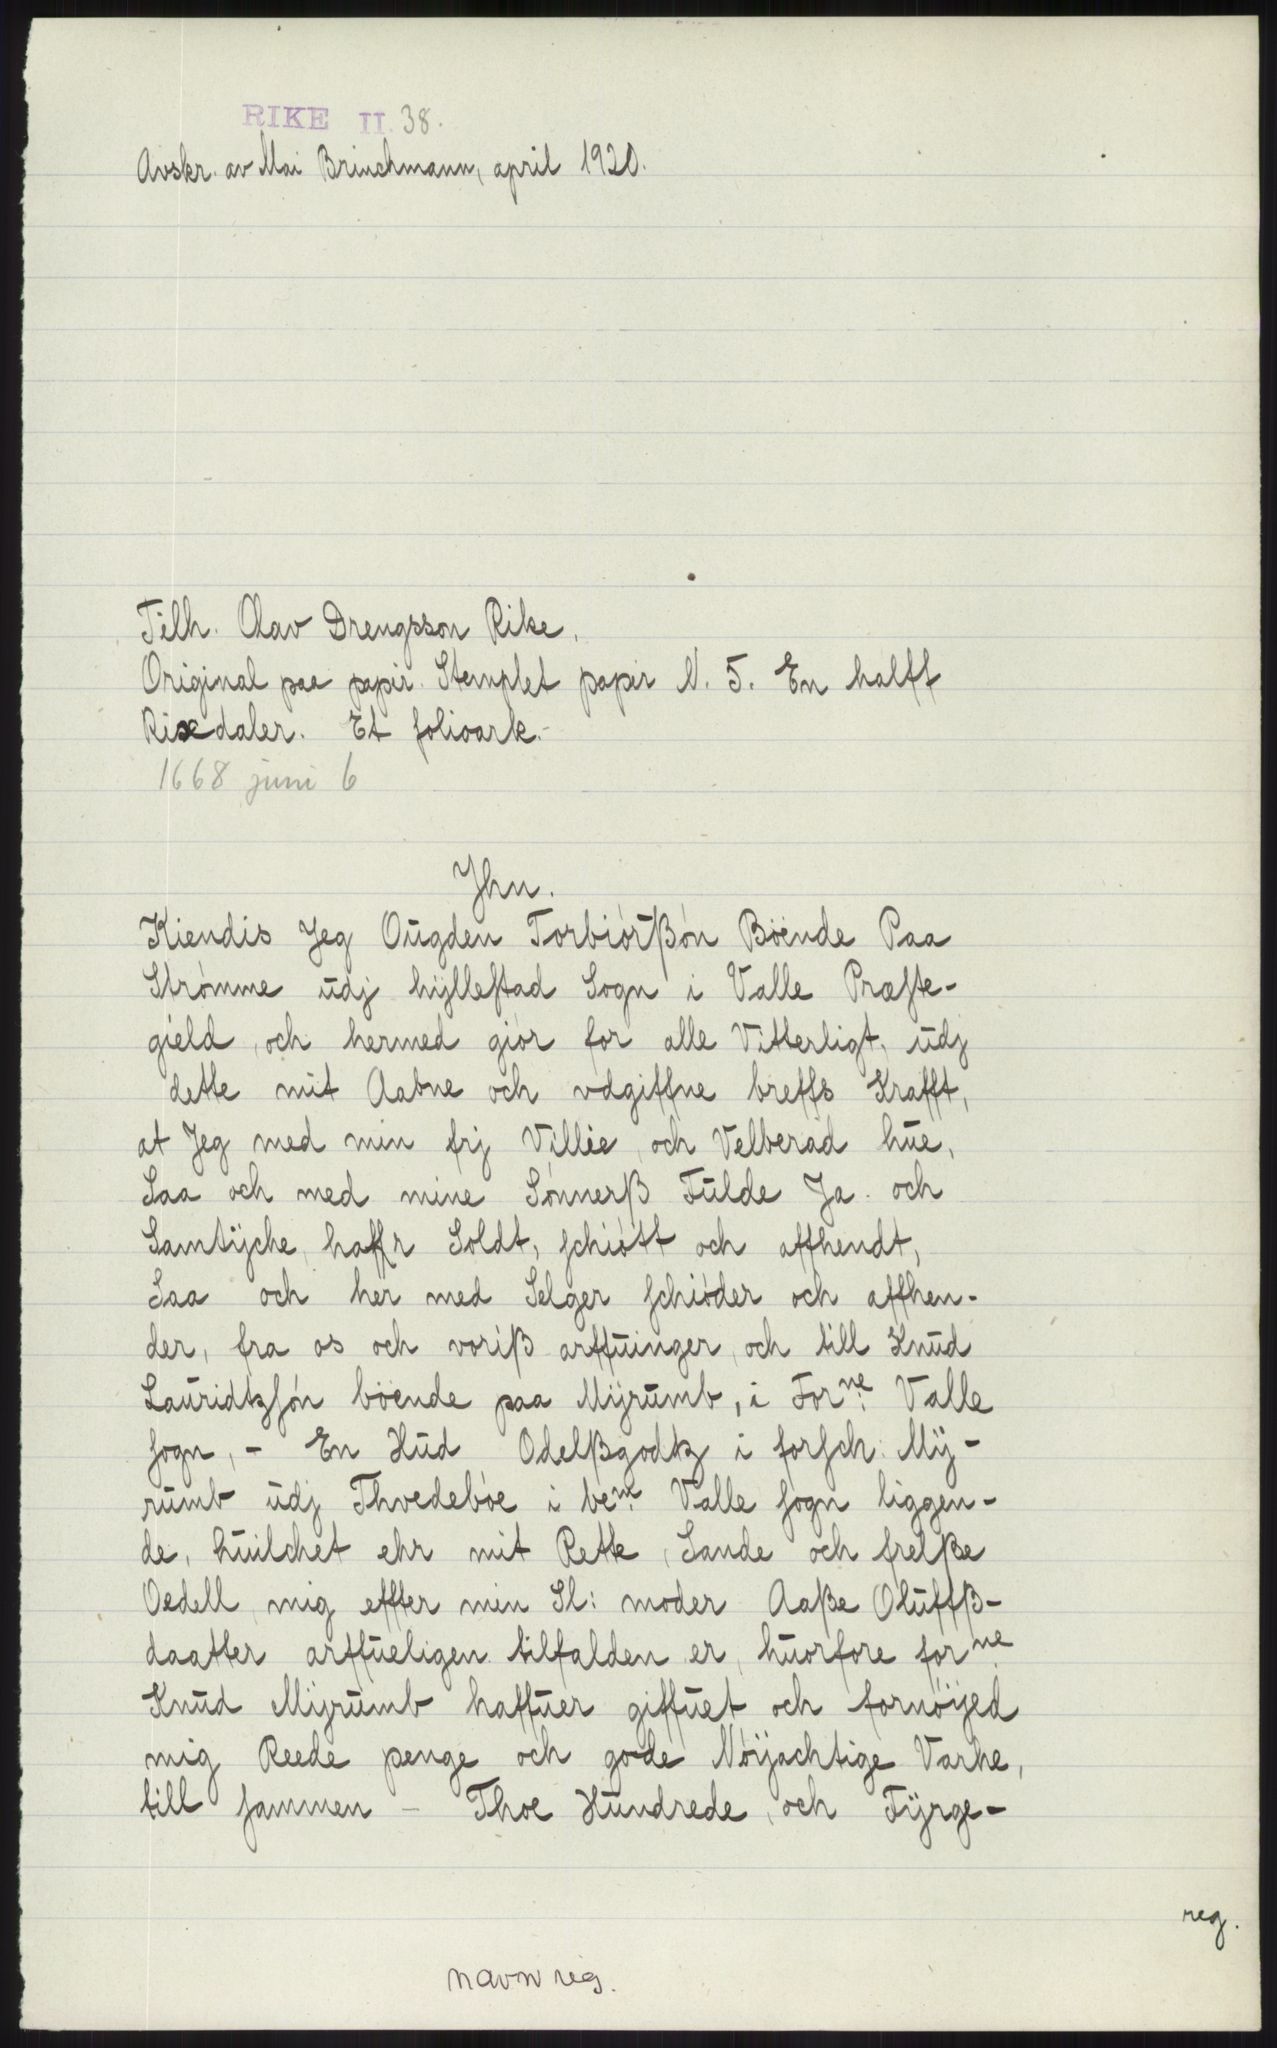 RIKE II. 38.
Avskr. av Mai Brinchmann, april 1920.
Tilh. Olav Drengsson Rike.
Original paa papir. Stemplet papir N. 5. En halff
Rixdaler. Et folioark.-
1668 juni 6
Jhn.
Kiendis Jeg Oŭgden Torbiörßön Böende Paa
Strömme ŭdj hÿlleftad Sogn i Valle Præfte-
gield, och hermed giör for alle Vitterligt, ŭdj
dette mit Aabne och vdgiffne breffs Krafft,
at Jeg med min frj Villie, och Velberad hŭe,
Saa och med mine Sönnerß Fŭlde Ja. och
Samtÿche, haffr Soldt, fchiött och affhendt,
Saa och her med Selger fchiöder och affhen-
der, fra os och voriß arffŭinger, och till Knŭd
Lauridtzfön böende paa Mÿrŭmb, i Forne. Valle
fogn, - En Hŭd Odelßgodtz i forfch: Mÿ-
rŭmb ŭdj Thvedeböe i bene. Valle fogn liggen-
de, hŭilchet ehr mit Rette, Sande och frelße
Oedell, mig effter min Sl: moder Aaße Olŭffß-
daatter arffŭeligen tilfalden er, hŭorfore forne.
Knŭd Mÿrŭmb haffŭer giffŭet och fornöÿed
mig Reede penge och gode Nöÿachtige Varhe,
till fammen - Thoe Hŭndrede, och Fÿrge-
reg.
navn reg.